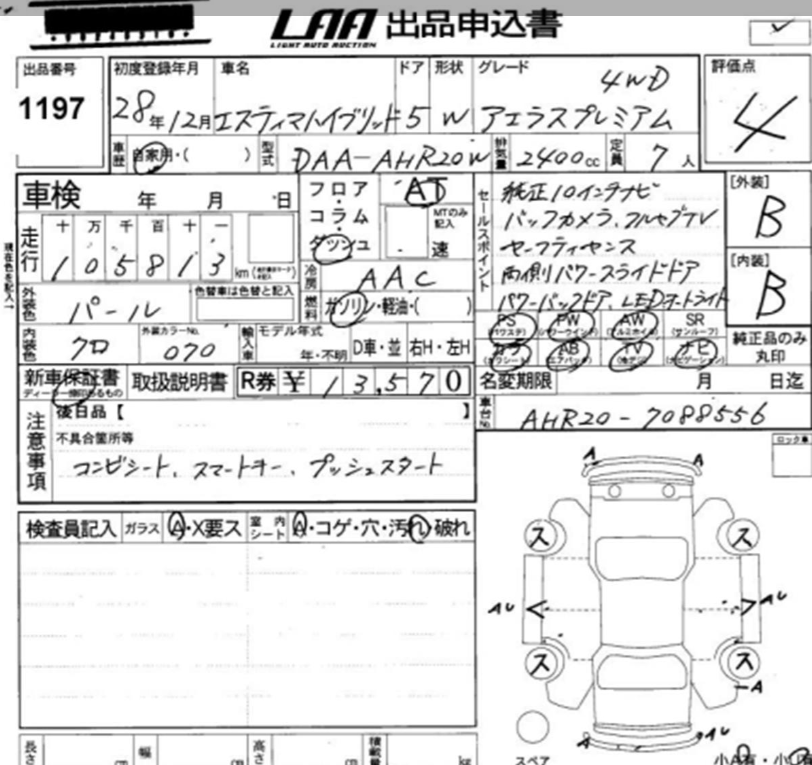 LAA 出品申込書
LIGHT AUTO AUCTION
出品番号 初度登録年月 車名 ドア 形状 グレード 評価点
1197 28年12月 エスティマハイブリッド 5 W 4WD アエラスプレミアム 4
車歴 自家用・( ) 型式 DAA-AHR20W 排気量 2400cc 定員 7人
車検 年 月 日
フロア AT
コラム MTのみ記入
ダッシュ 速
走行 十 万 千 百 十 一
1 0 5 8 1 3 km
現在色を記入→
外装色 パール 色替車は色替と記入
冷房 AAC
燃料 ガソリン・軽油・( )
内装色 クロ 外装カラーNo. 070 輸入車 モデル年式 年・不明 D車・並 右H・左H
セールスポイント 純正10インチナビ
バックカメラ、フルセグTV
セーフティセンス
両側パワースライドドア
パワーバックドア、LEDオートライト
[外装]
B
[内装]
B
純正品のみ丸印
PS PW AW SR
(パワステ) (パワーウインド) (アルミホイル) (サンルーフ)
カワ AB TV ナビ
(カワシート) (エアバッグ) (地デジ) (ナビゲーション)
新車保証書 取扱説明書 R券 ¥ 13,570 名変期限 月 日迄
注意事項 後日品【 】
車台No. AHR20-7088556
不具合箇所等
コンビシート、スマートキー、プッシュスタート
ロック車
検査員記入 ガラス A・X要ス 室内シート A・コゲ・穴・汚れ・破れ
A A
ス ス
AU AU
ス ス
A
A AU
スペア
長さ cm 幅 cm 高さ cm 積載量 kg